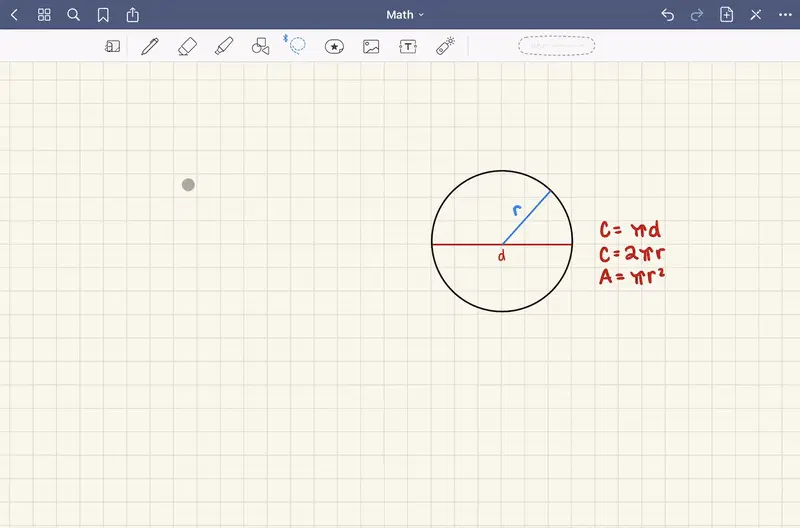 Math
T
r
d
C = πd
C = 2πr
A = πr²